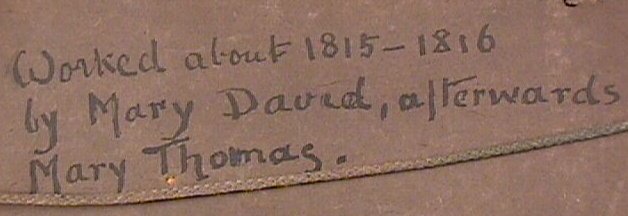 Worked about 1815-1816
by Mary David, afterwards
Mary Thomas.